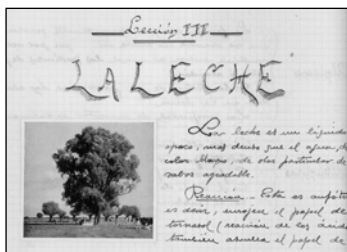 Lección III
LA LECHE
La leche es un líquido
opaco, mas denso que el agua, de
color blanco, de olor particular de
sabor agradable.
Reacción - Esta es anfót
es decir, enrojece el papel de
tornasol (reacción de los ácido
tambien azulea el papel de